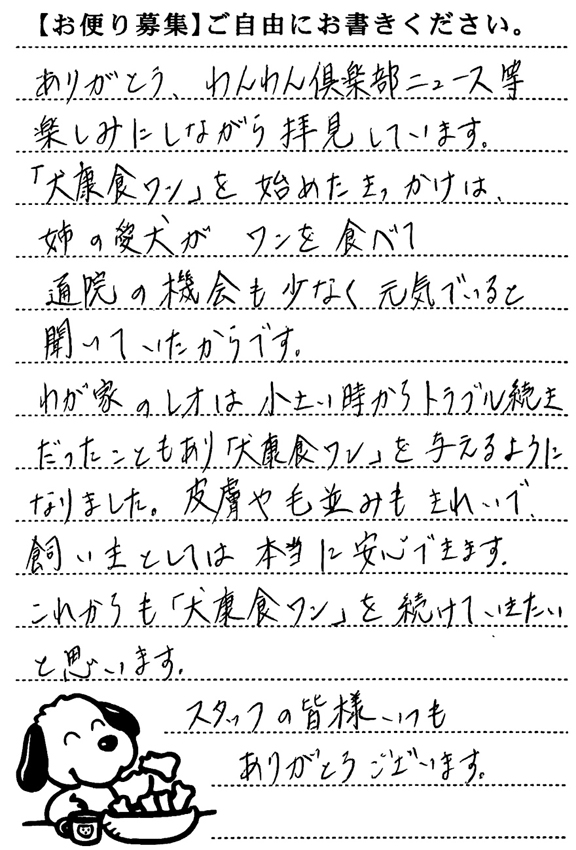 【お便り募集】ご自由にお書きください。
ありがとう、わんわん倶楽部ニュース等
楽しみにしながら拝見しています。
「犬康食ワン」を始めたきっかけは、
姉の愛犬がワンを食べて
通院の機会も少なく元気でいると
聞いていたからです。
わが家のレオは小さい時からトラブル続き
だったこともあり「犬康食ワン」を与えるように
なりました。皮膚や毛並みもきれいで、
飼い主としては本当に安心できます。
これからも「犬康食ワン」を続けていきたい
と思います。
スタッフの皆様いつも
ありがとうございます。